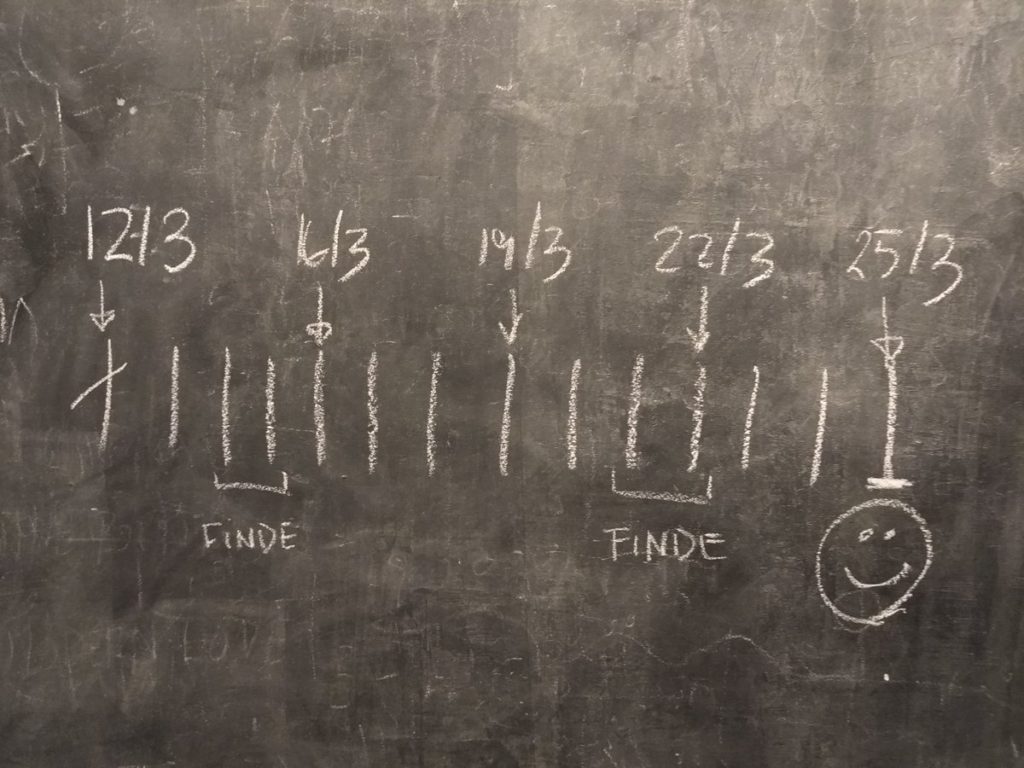 12/3 16/3 19/3 22/3 25/3
FINDE FINDE